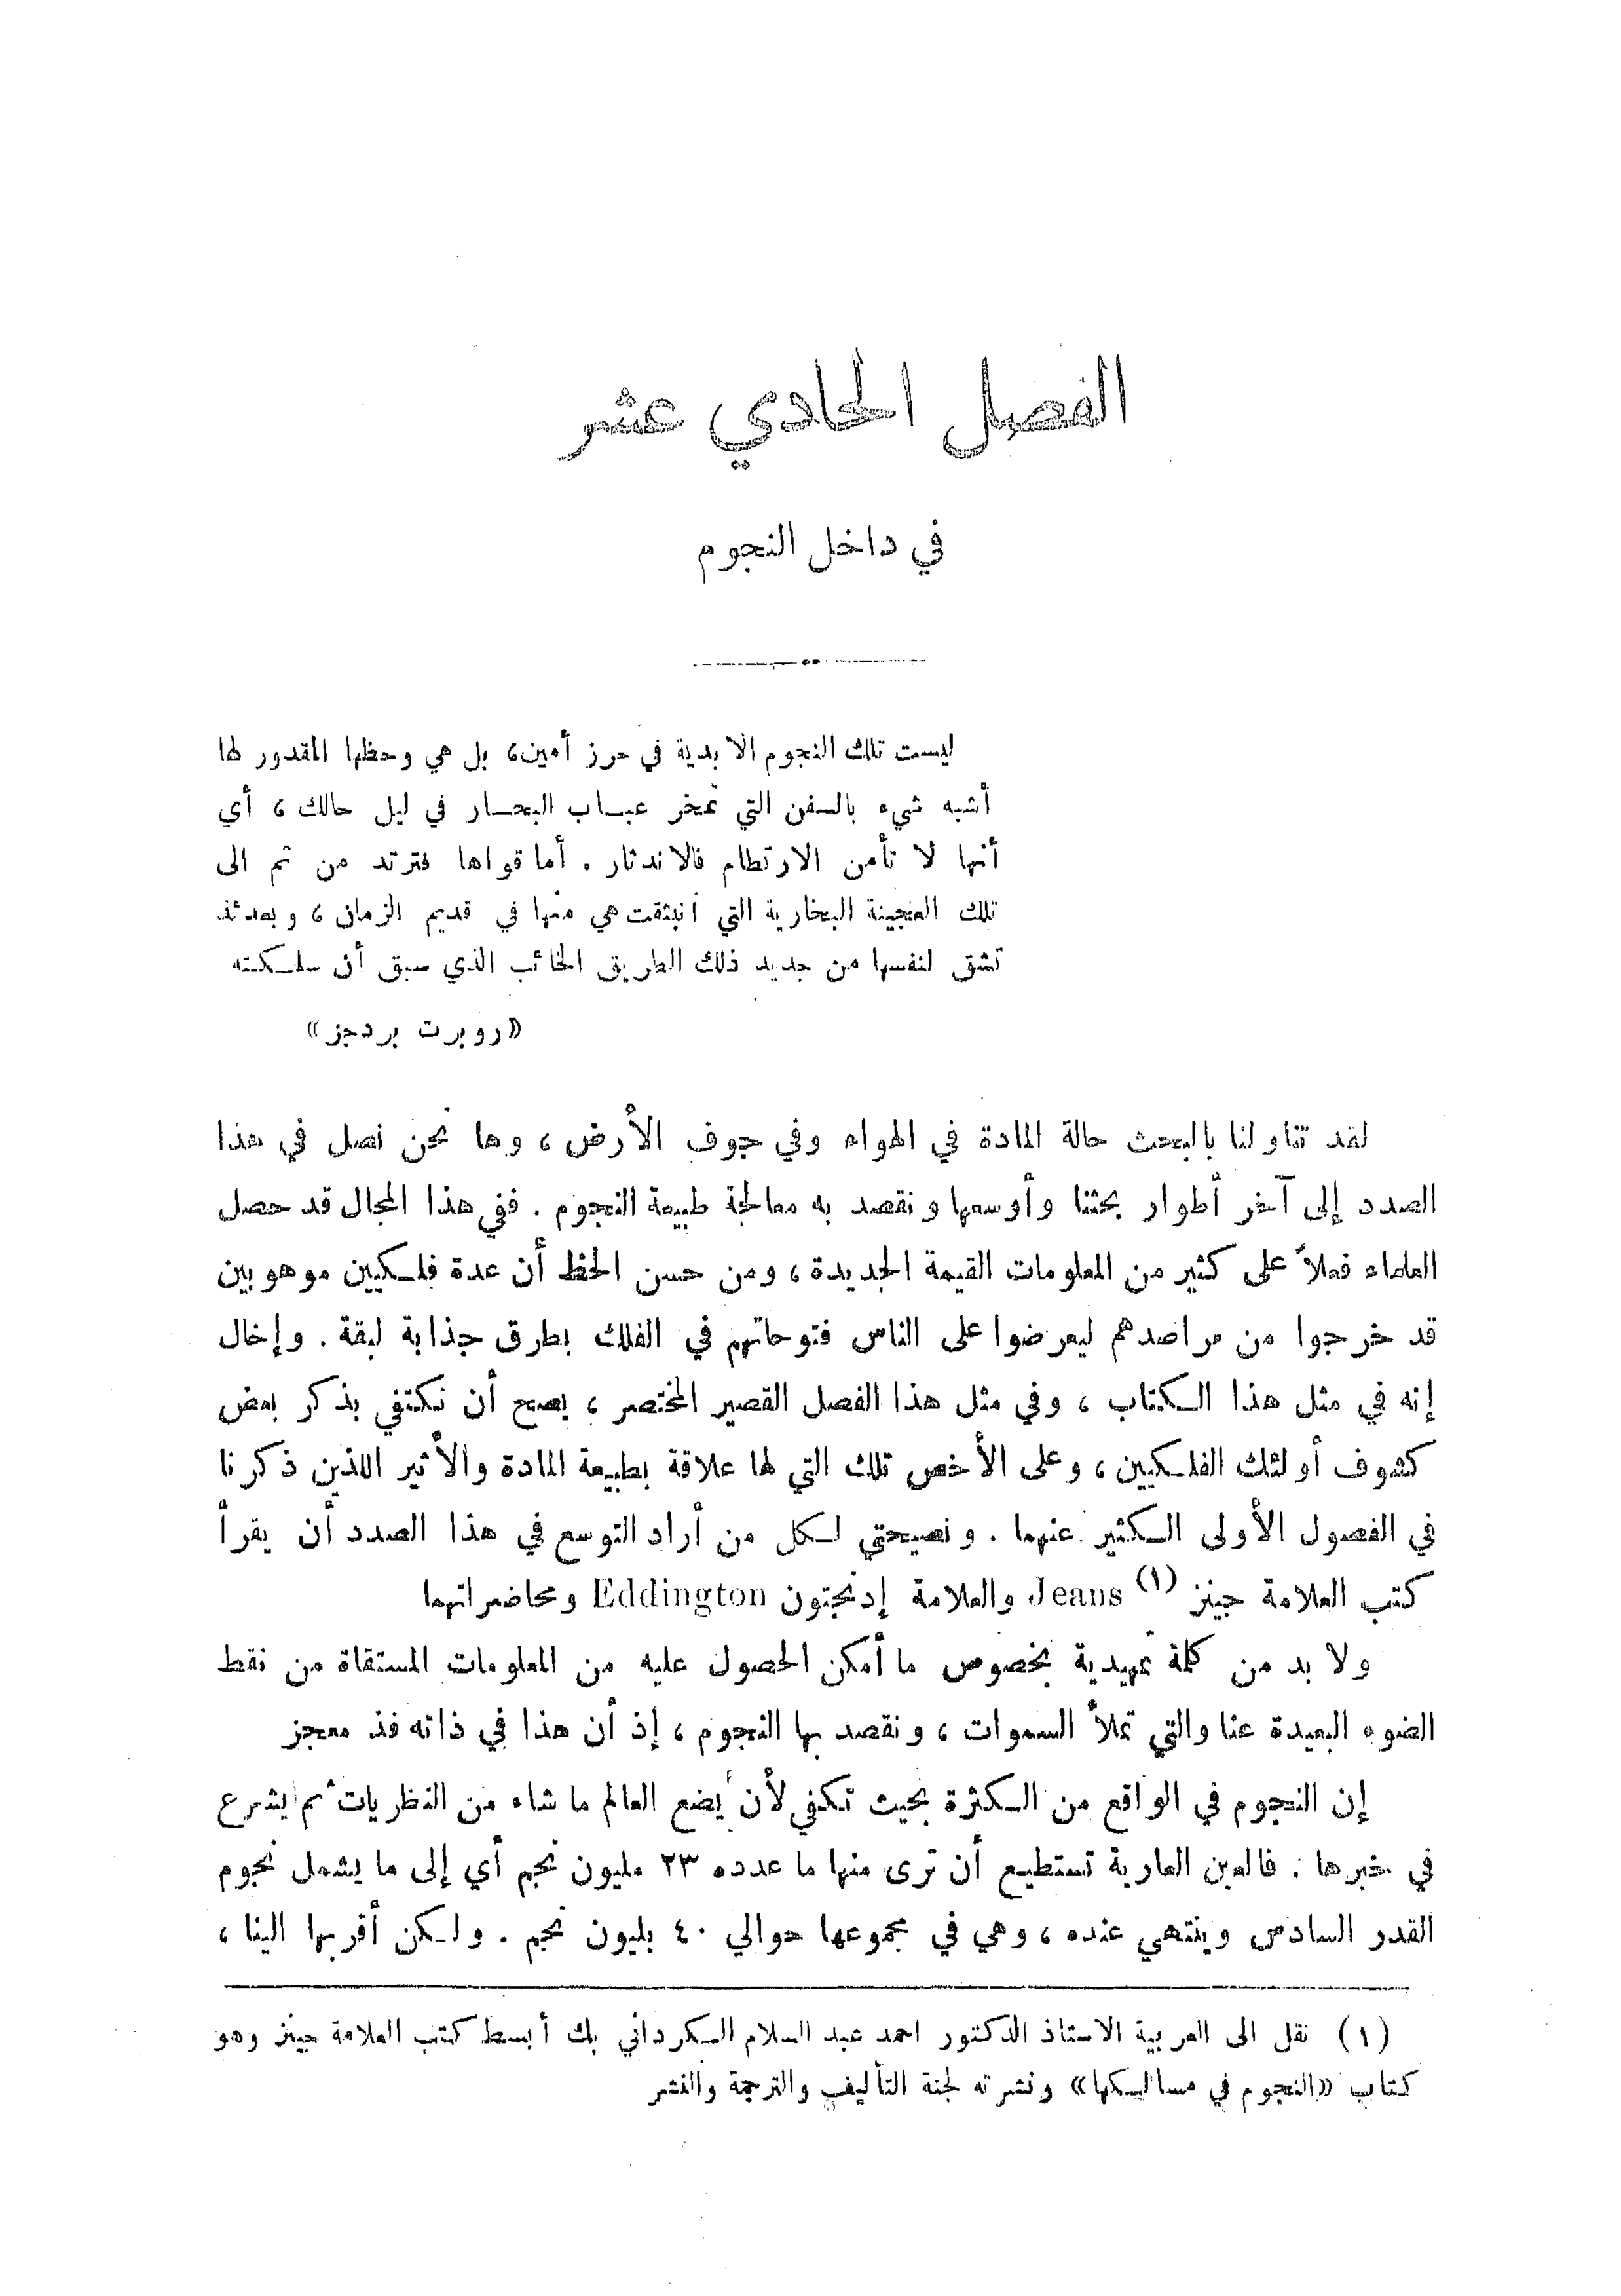 الفصل الحادي عشر
في داخل النجوم
ليست تلك النجوم الابدية في حرز أمين، بل هي وحظها المقدور لها
أشبه شيء بالسفن التي تمخر عباب البحار في ليل حالك، أي
أنها لا تأمن الارتطام فالاندثار. أما قواها فترتد من ثم الى
تلك العجينة البخارية التي انبثقت هي منها في قديم الزمان، وبعدئذ
تشق لنفسها من جديد ذلك الطريق الخائب الذي سبق أن سلكته
«روبرت بردجز»
لقد تناولنا بالبحث حالة المادة في الهواء وفي جوف الأرض، وها نحن نصل في هذا
الصدد إلى آخر أطوار بحثنا وأوسعها ونقصد به معالجة طبيعة النجوم. ففي هذا المجال قد حصل
العلماء فعلاً على كثير من المعلومات القيمة الجديدة، ومن حسن الحظ أن عدة فلكيين موهوبين
قد خرجوا من مراصدهم ليعرضوا على الناس فتوحاتهم في الفلك بطرق جذابة لبقة. وإخال
إنه في مثل هذا الكتاب، وفي مثل هذا الفصل القصير المختصر، يصح أن نكتفي بذكر بعض
كشوف أولئك الفلكيين، وعلى الأخص تلك التي لها علاقة بطبيعة المادة والأثير اللذين ذكرنا
في الفصول الأولى الكثير عنهما. ونصيحتي لكل من أراد التوسع في هذا الصدد أن يقرأ
كتب العلامة جينز (١) Jeans والعلامة إدنجتون Eddington ومحاضراتهما
ولا بد من كلمة تمهيدية بخصوص ما أمكن الحصول عليه من المعلومات المستقاة من نقط
الضوء البعيدة عنا والتي تملأ السموات، ونقصد بها النجوم، إذ أن هذا في ذاته فذ معجز
إن النجوم في الواقع من الكثرة بحيث تكفي لأن يضع العالم ما شاء من النظريات ثم يشرع
في خبرها. فالعين العارية تستطيع أن ترى منها ما عدده ٢٣ مليون نجم أي إلى ما يشمل نجوم
القدر السادس وينتهي عنده، وهي في مجموعها حوالي ٤٠ بليون نجم. ولكن أقربها الينا،
(١) نقل الى العربية الاستاذ الدكتور احمد عبد السلام الكرداني بك أبسط كتب العلامة جينز وهو
كتاب «النجوم في مسالكها» ونشرته لجنة التأليف والترجمة والنشر